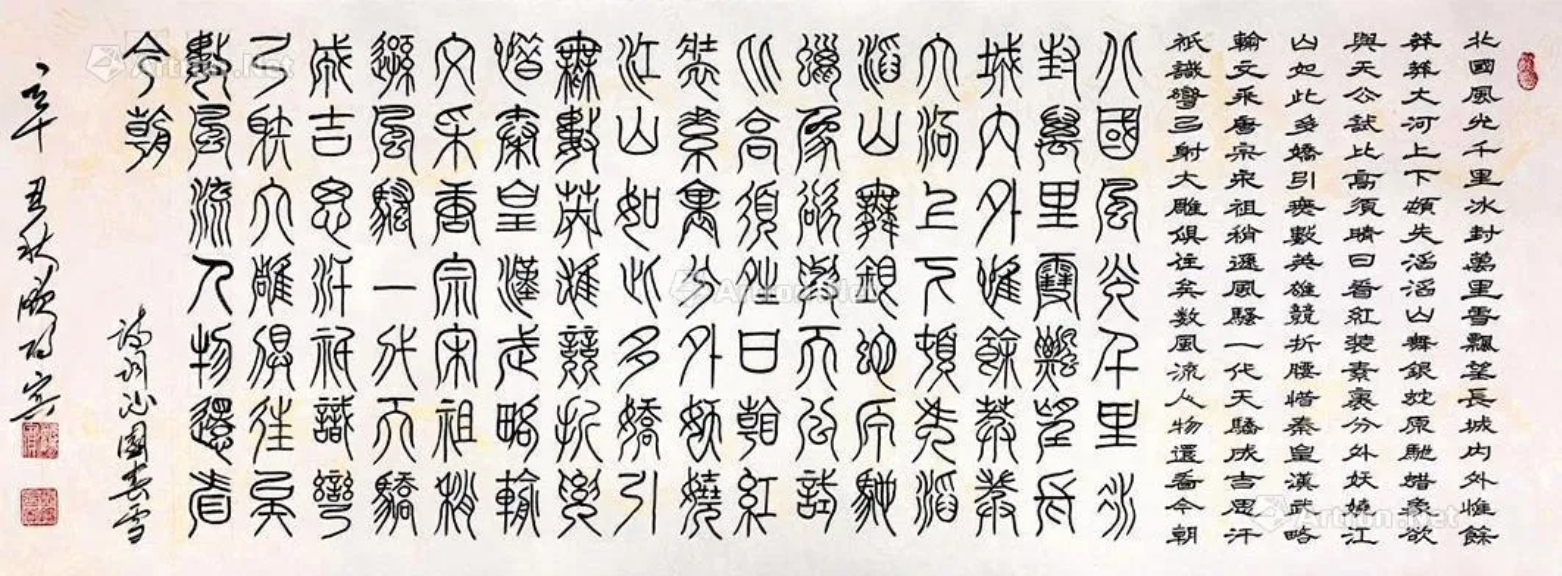 北國風光千里冰封萬里雪飄望長城內外惟餘
莽莽大河上下頓失滔滔山舞銀蛇原馳蜡象欲
與天公試比高須晴日看紅裝素裹分外妖嬈江
山如此多嬌引無數英雄競折腰惜秦皇漢武略
輸文采唐宗宋祖稍遜風騷一代天驕成吉思汗
祇識彎弓射大雕俱往矣数風流人物還看今朝
北國風光千里冰
封萬里雪飄望長
城內外惟餘莽莽
大河上下頓失滔
滔山舞銀蛇原馳
蠟象欲與天公試
比高須晴日看紅
裝素裹分外妖嬈
江山如此多嬌引
無數英雄競折腰
惜秦皇漢武略輸
文采唐宗宋祖稍
遜風騷一代天驕
成吉思汗祇識彎
弓射大雕俱往矣
數風流人物還看
今朝
詩詞沁園春雪
辛丑秋
Artron.Net
Artron.Net
Artron.Net